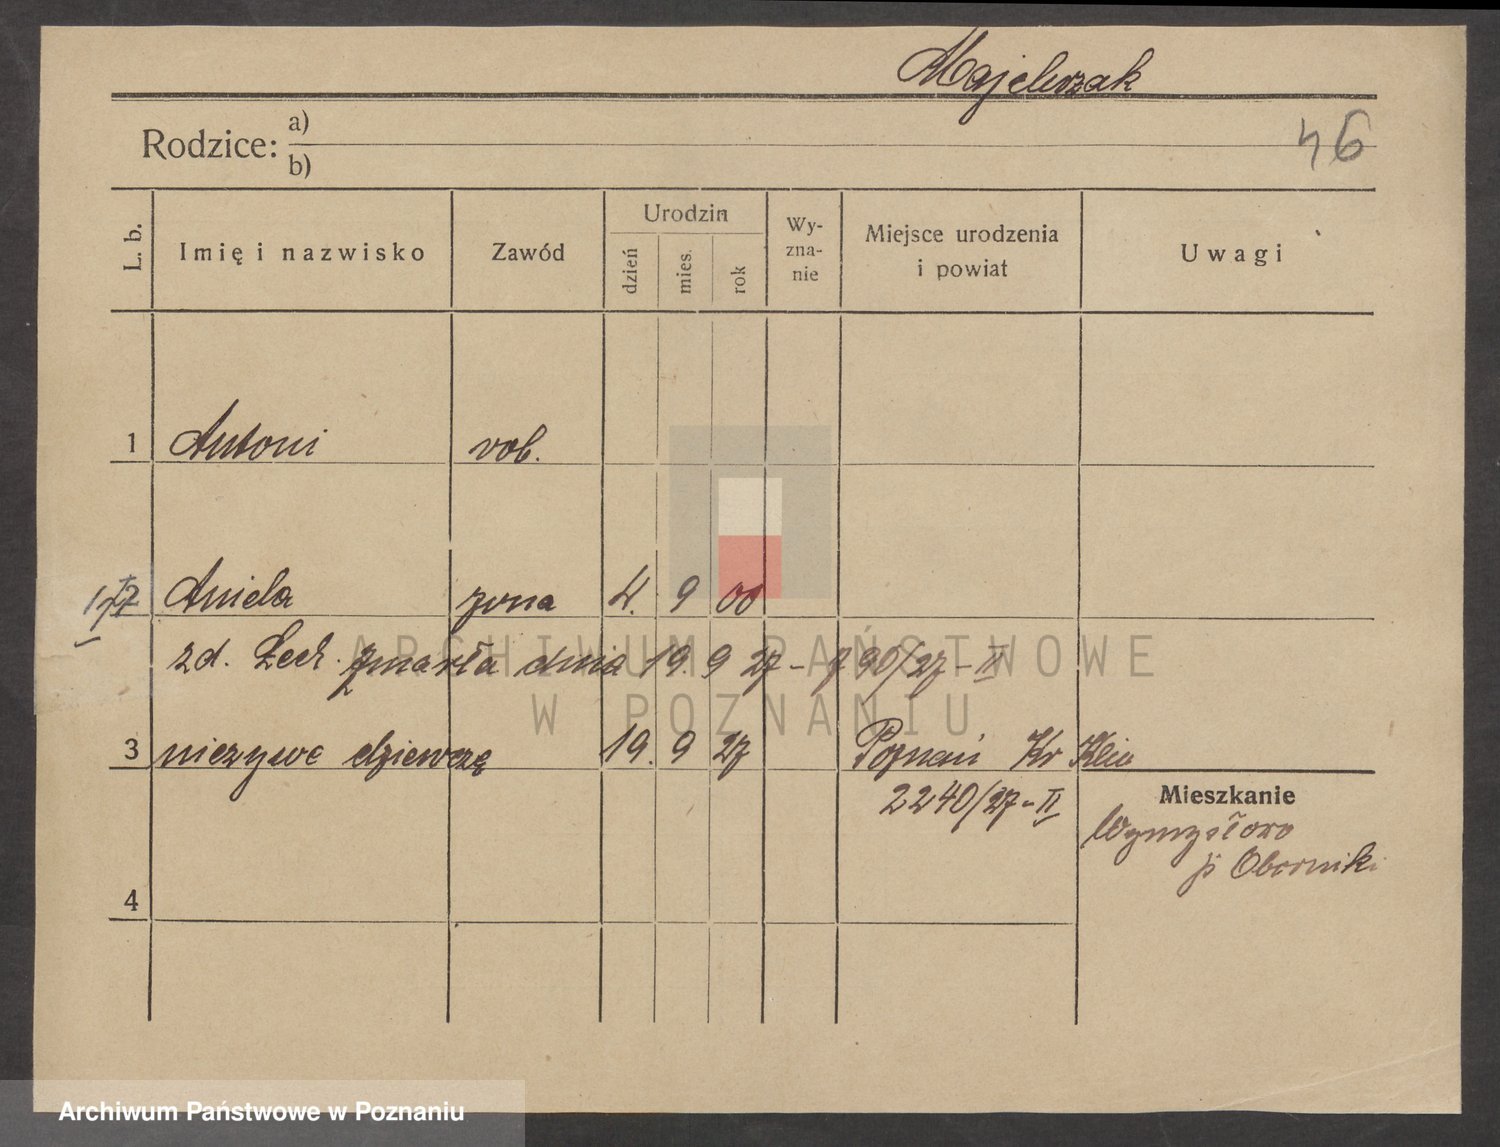 Majchrzak
46
Rodzice: a)
b)
L. b. Imię i nazwisko Zawód Urodzin dzień mies. rok Wy-zna-nie Miejsce urodzenia i powiat Uwagi
1 Antoni rob.
Aniela żona 4. 9 00
zd. Lech. zmarła dnia 19. 9 27 - 90/27 - II
3 nieżywe dziewczę 19. 9 27 Poznań Kr Klin
2240/27 - II
Mieszkanie
Wymysłowo
p Oborniki
4
ARCHIWUM PAŃSTWOWE
W POZNANIU
Archiwum Państwowe w Poznaniu